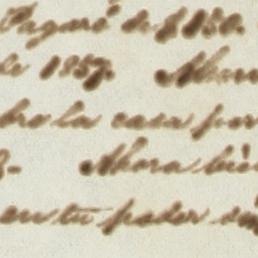 Pagaré de $ 180.
de 1857.
bre la casa por
Ahora bien
en tu poder